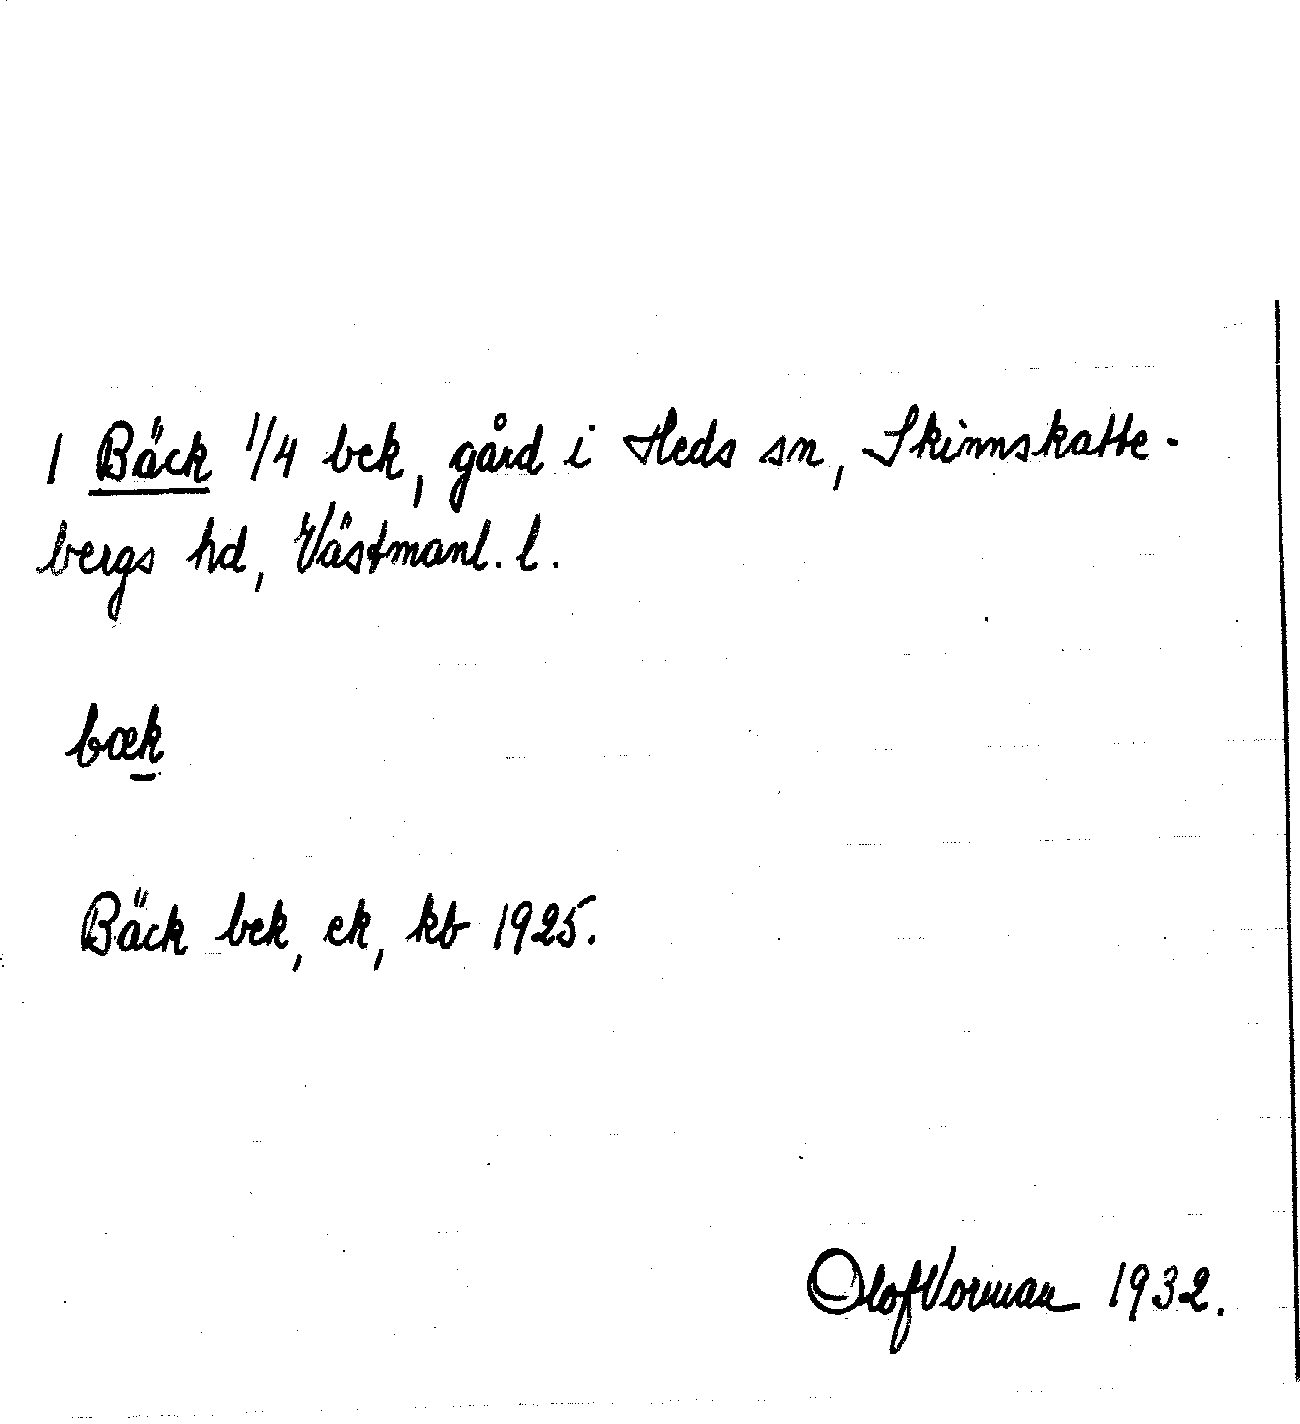 1 Bäck 1/4 bek, gård i Heds sn, Skinnskatte-
bergs hd, Västmanl. l.
bæk
Bäck bek, ek, kb 1925.
Olof Vorman 1932.